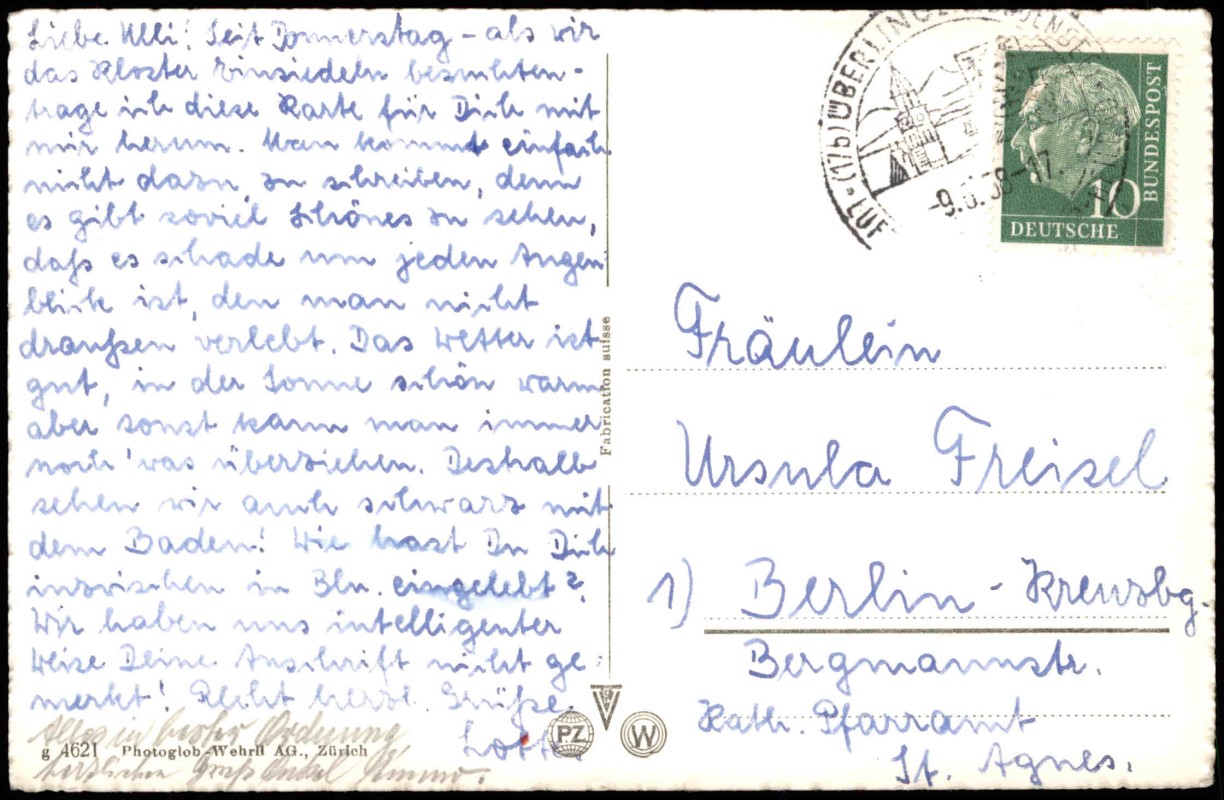 Liebe Ulli! Seit Donnerstag - als wir
das Kloster Einsiedeln besuchten -
trage ich diese Karte für Dich mit
mir herum. Man kommt einfach
nicht dazu, zu schreiben, denn
es gibt soviel Schönes zu sehen,
daß es schade um jeden Augen-
blick ist, den man nicht
draußen verlebt. Das Wetter ist
gut, in der Sonne schön warm
aber sonst kann man immer
noch 'was überziehen. Deshalb
sehen wir auch schwarz mit
dem Baden! Wie hast Du Dich
inzwischen in Bln. eingelebt?
Wir haben uns intelligenter
Weise Deine Anschrift nicht ge-
merkt! Recht herzl. Grüße.
Lotte
Alles in bester Ordnung
herzlichen Gruß Onkel
g 4621 Photoglob-Wehrli AG., Zürich
Fabrication suisse
PZ
W
(17b) ÜBERLINGEN
BODENSEE
LUF
DEUTSCHE
BUNDESPOST
10
Fräulein
Ursula Freisel
1) Berlin - Kreuzbg.
Bergmannstr.
Kath. Pfarramt
St. Agnes.